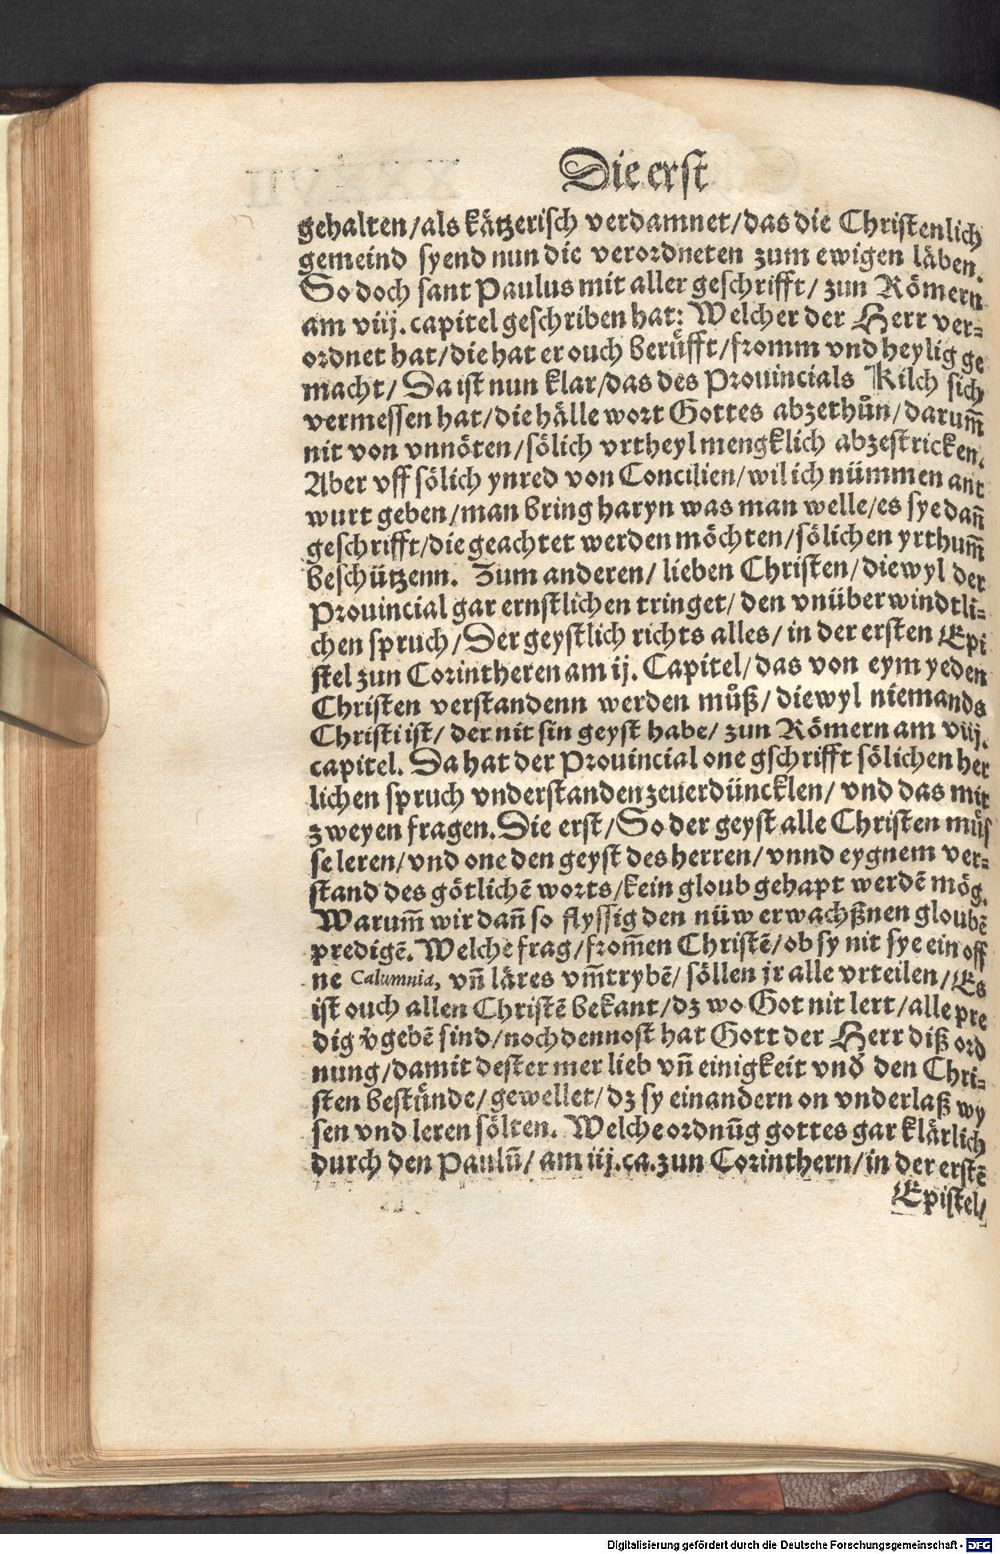 Die erst
gehalten/als kätzerisch verdamnet/das die Christenlich
gemeind syend nun die verordneten zum ewigen läben.
So doch sant Paulus mit aller geschrifft/ zun Römern
am viij. capitel geschriben hat: Welcher der Herr ver⸗
ordnet hat/die hat er ouch berüfft/fromm vnd heylig ge
macht/ Da ist nun klar/das des Prouincials Kilch sich
vermessen hat/die hälle wort Gottes abzethůn/darum̃
nit von vnnöten/sölich vrtheyl mengklich abzestricken.
Aber vff sölich ynred von Concilien/wil ich nümmen ant
wurt geben/man bring haryn was man welle/es sye dañ
geschrifft/die geachtet werden möchten/sölichen yrthum̃
beschützenn. Zum anderen/ lieben Christen/diewyl der
Prouincial gar ernstlichen tringet/ den vnüberwindtli⸗
chen spruch/Der geystlich richts alles/ in der ersten Epi
stel zun Corintheren am ij. Capitel/das von eym yeden
Christen verstandenn werden můß/diewyl niemands
Christi ist/ der nit sin geyst habe/ zun Römern am viij.
capitel. Da hat der Prouincial one gschrifft sölichen her
lichen spruch vnderstanden zeuerdüncklen/ vnd das mit
zweyen fragen. Die erst/So der geyst alle Christen müs
se leren/vnd one den geyst des herren/vnnd eygnem ver⸗
stand des götlichẽ worts/kein gloub gehapt werdẽ mög.
Warum̃ wir dañ so flyssig den nüw erwachßnen gloubẽ
predigẽ. Welche frag/from̃en Christẽ/ob sy nit sye ein off
ne Calumnia, vñ läres vm̃trybẽ/ söllen jr alle vrteilen/Es
ist ouch allen Christẽ bekant/dz wo Got nit lert/alle pre
dig v̾gebẽ sind/nochdennost hat Gott der Herr diß ord
nung/damit dester mer lieb vñ einigkeit vnd̾ den Chri⸗
sten bestünde/gewellet/dz sy einandern on vnderlaß wy
sen vnd leren sölten. Welche ordnũg gottes gar klärlich
durch den Paulũ/ am iij.ca.zun Corinthern/in der erstẽ
Epistel/
Digitalisierung gefördert durch die Deutsche Forschungsgemeinschaft - DFG